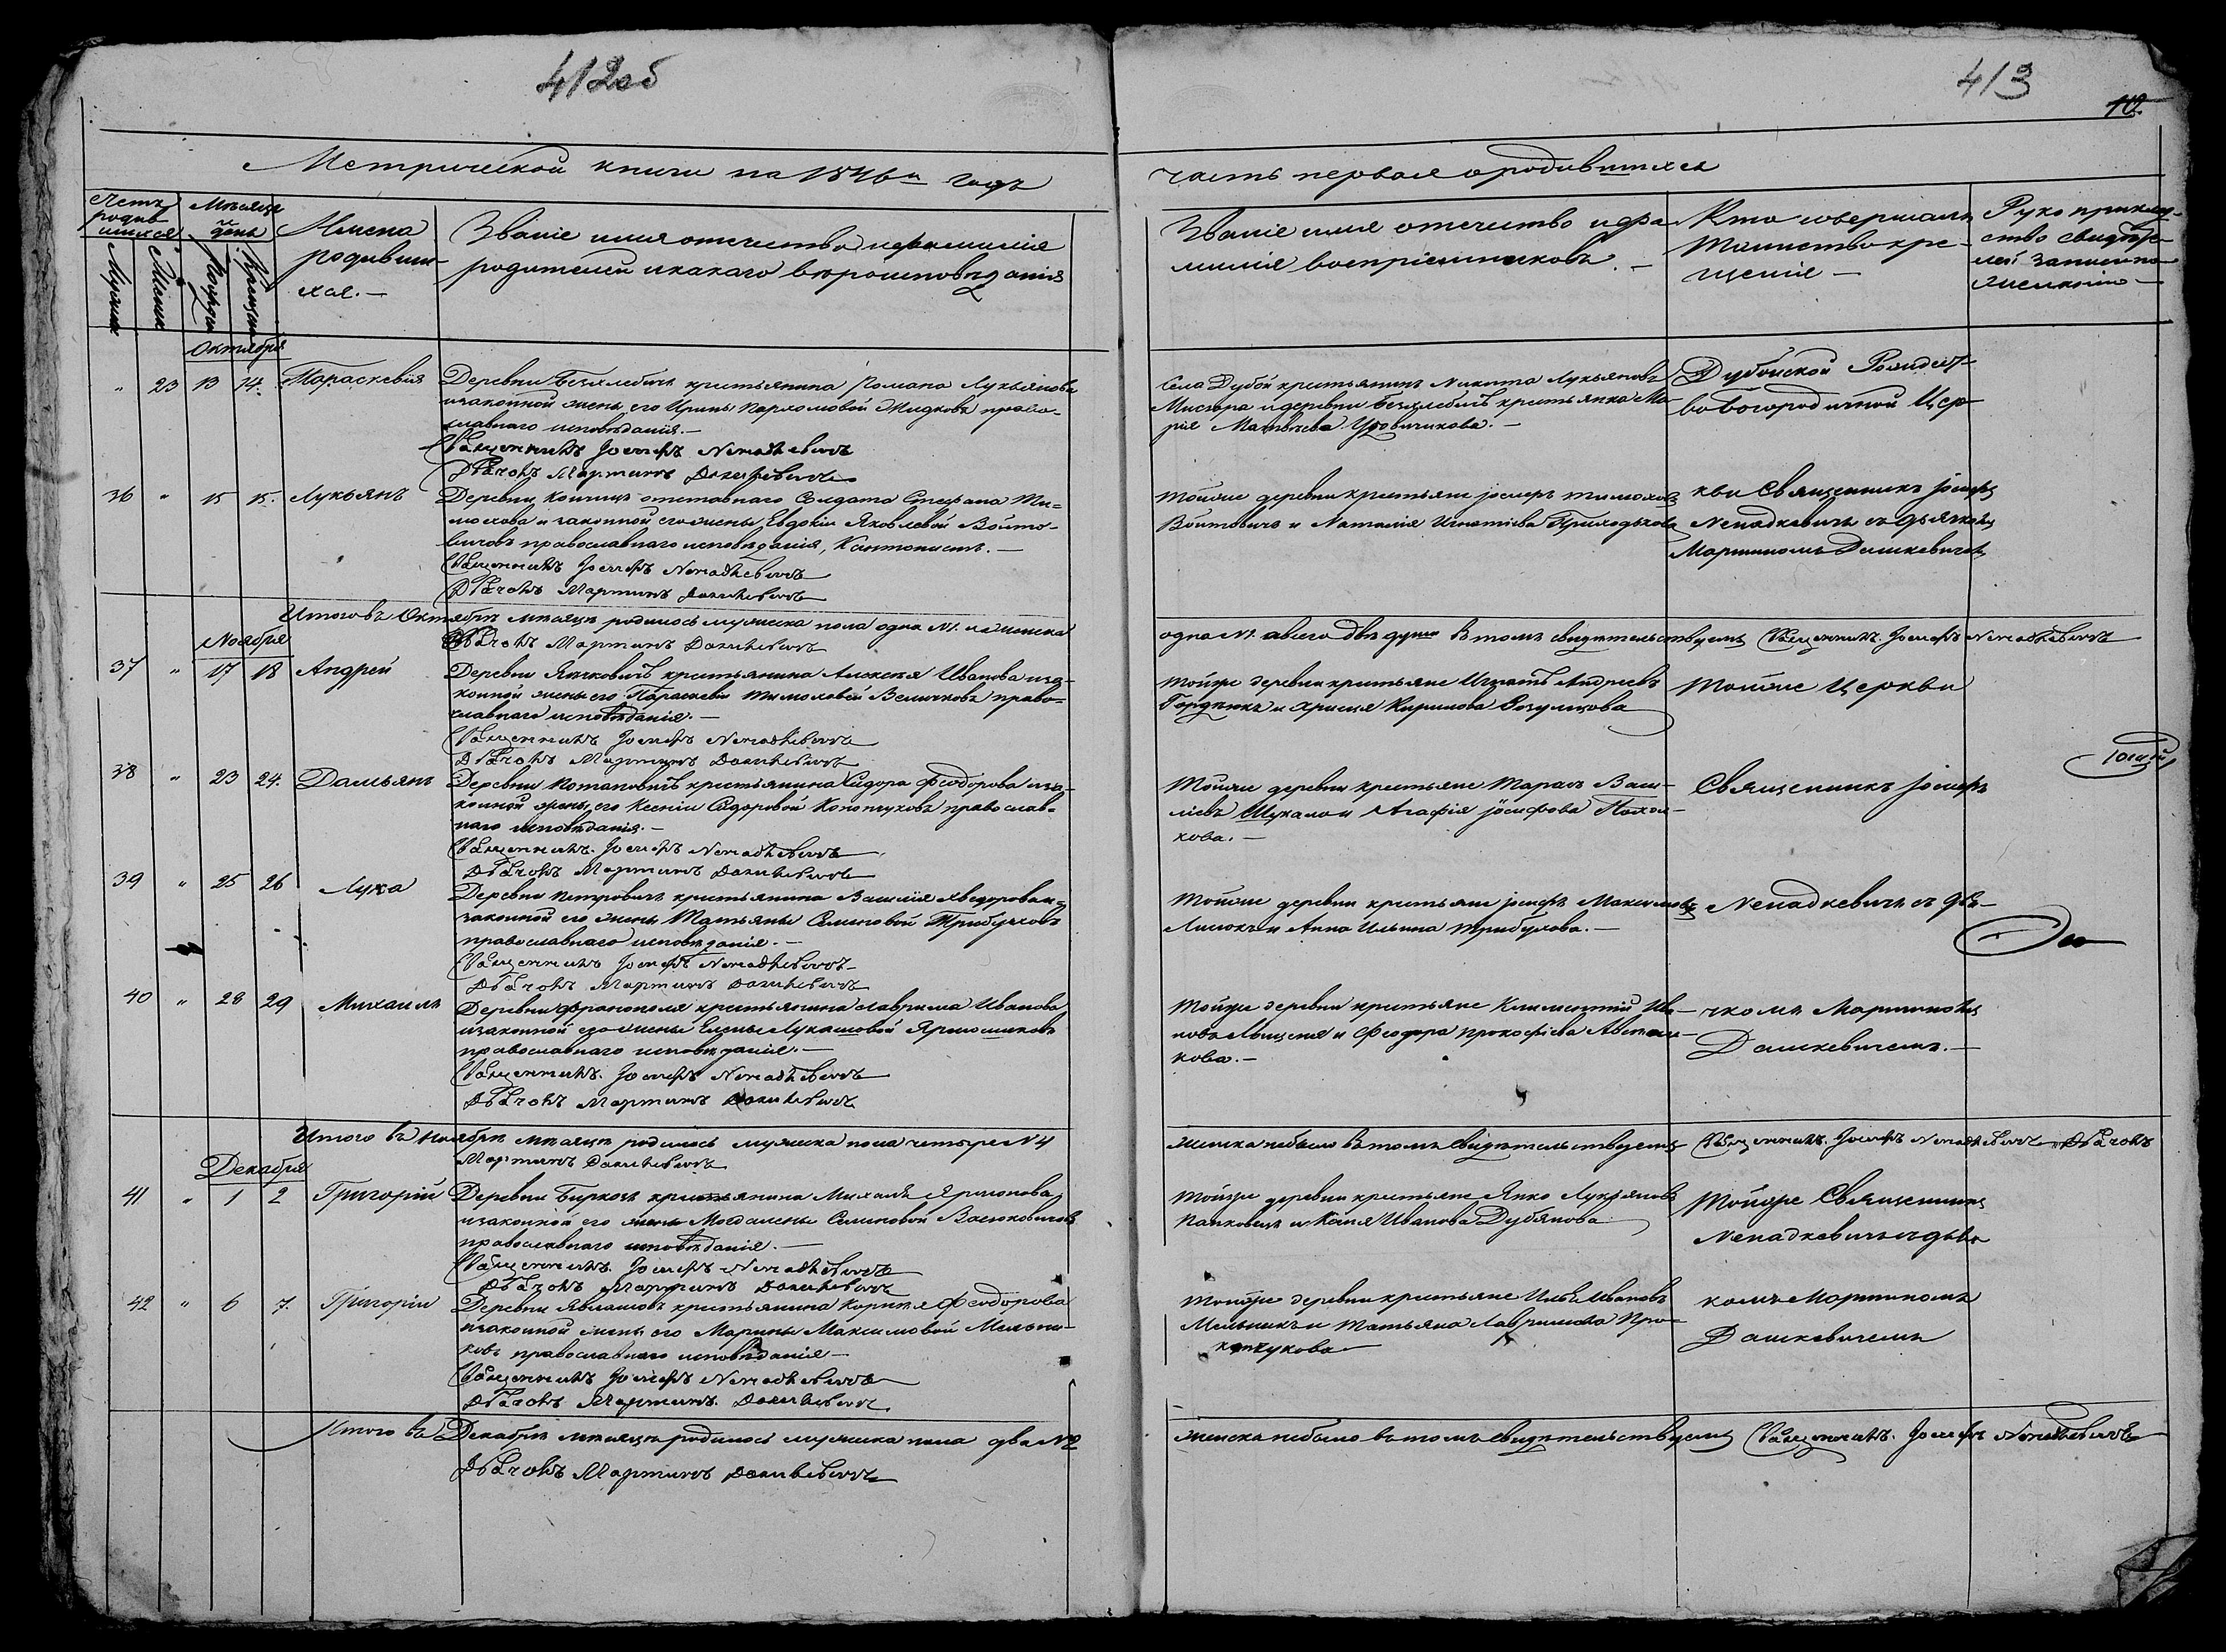 412об
413
10
Метрической книги на 1846й годъ
часть первая о родившихся
Счетъ родив шихся
Мѣсяцъ и день
Имена родивши хся. —
Званіе имя отечество и фамилія
родителей и какаго вѣроисповѣданія
Званіе имя отечество и фа
милія воспріемниковъ. —
Кто совершалъ
таинство кре-
щенія —
Рукоприклад-
ство свидѣте-
лей записи по
желанію —
Мужска
Женск
Рожденія
Крещенія
Октября
" 23 13 14. Параскевія Деревни Безхлебичъ крестьянина Романа Лукьянова
изаконной жены его Ирины Пархомовой Жидковъ право-
славнаго исповѣданія. —
Священникъ Іосифъ Ненадкевичъ
Дьячокъ Мартинъ Дашкевичъ
Села Дубой крестьянинъ Никита Лукьяновъ
Мисюра и деревни Безхлебичъ крестьянка Ма-
рія Матвѣева
Дубойской Рождест-
во Богородичной Цер-
36 " 15 15. Лукьянъ Деревни отставнаго Солдата Стефана Ти-
мохова и законной его жены Евдокіи Яковлевой Войто-
вичовъ православнаго исповѣданія, Кантонистъ. —
Священникъ Іосифъ Ненадкевичъ
Дьячокъ Мартинъ Дашкевичъ
Тойже деревни крестьяне Іосифъ Тимоховъ
Войтовичъ и Наталія Игнатіева Приходькова
кви Священникъ Іосифъ
Ненадкевичъ съ дьячкомъ
Мартиномъ Дашкевичемъ
Итого въ Октябрѣ мѣсяцѣ родилось мужеска пола одна №1. и женска
одна №1. а всего двѣ души въ томъ свидѣтельствуемъ Священникъ Іосифъ Ненадкевичъ
Дьячокъ Мартинъ Дашкевичъ
Ноября
37 " 17 18 Андрей Деревни крестьянина Алексѣя Иванова иза-
конной жены его Параскевы Тимоховой Величковъ право-
славнаго исповѣданія. —
Священникъ Іосифъ Ненадкевичъ
Дьячокъ Мартинъ Дашкевичъ
Тойже деревни крестьяне Игнатъ Андреевъ
и Кирилова
Тойже Церкви
38 " 23 24. Дамьянъ Деревни Потаповичъ крестьянина Сидора Феодорова иза-
конной жены его Ксеніи Сидоровой Конопчуковъ православ-
наго исповѣданія. —
Священникъ Іосифъ Ненадкевичъ
Дьячокъ Мартинъ Дашкевичъ
Тойже деревни крестьяне Тарасъ Васи-
ліевъ Шукало и Агафія Іосифова
кова. —
Священникъ Іосифъ
39 " 25 26 Лука Деревни Петровичъ крестьянина Василія Хведорова и
законной его жены Татьяны Семеновой Трибуховъ
православнаго исповѣданія. —
Священникъ Іосифъ Ненадкевичъ
Дьячокъ Мартинъ Дашкевичъ
Тойже деревни крестьяне Іосифъ Максимовъ
и Анна Ильина Трибухова. —
Ненадкевичъ съ дья-
40 " 28 29 Михаилъ Деревни Франополя крестьянина Лаврина Иванова
изаконной его жены Елены Лукашовой Ярмошиковъ
православнаго исповѣданія. —
Священникъ Іосифъ Ненадкевичъ
Дьячокъ Мартинъ Дашкевичъ
Тойже деревни крестьяне Климентій Ива-
новъ и Феодора Прокофіева
кова. —
чкомъ Мартиномъ
Дашкевичемъ. —
Итого въ Ноябрѣ мѣсяцѣ родилось мужеска пола четыре №4
женска небыло въ томъ свидѣтельствуемъ Священникъ Іосифъ Ненадкевичъ Дьячокъ
Мартинъ Дашкевичъ
Декабря
41 " 1 2 Григорій Деревни крестьянина Михаила Ярмонова
изаконной его жены Магдалены Семеновой Васюковичовъ
православнаго исповѣданія. —
Священникъ Іосифъ Ненадкевичъ
Дьячокъ Мартинъ Дашкевичъ
Тойже деревни крестьяне Янко Лукьяновъ
Панковецъ и Иванова
Тойже Священникъ
Ненадкевичъ съ дьяч
42 " 6 7. Григорій Деревни крестьянина Корнея Феодорова
изаконной жены его Марины Максимовой Мельни-
ковъ православнаго исповѣданія —
Священникъ Іосифъ Ненадкевичъ
Дьячокъ Мартинъ Дашкевичъ
Тойже деревни крестьяне Илья Ивановъ
Мельникъ и Татьяна Лавринова Про-
копчукова —
комъ Мартиномъ
Дашкевичемъ
Итого въ Декабрѣ мѣсяцѣ родилось мужеска пола два №2
женска небыло въ томъ свидѣтельствуемъ Священникъ Іосифъ Ненадкевичъ
Дьячокъ Мартинъ Дашкевичъ